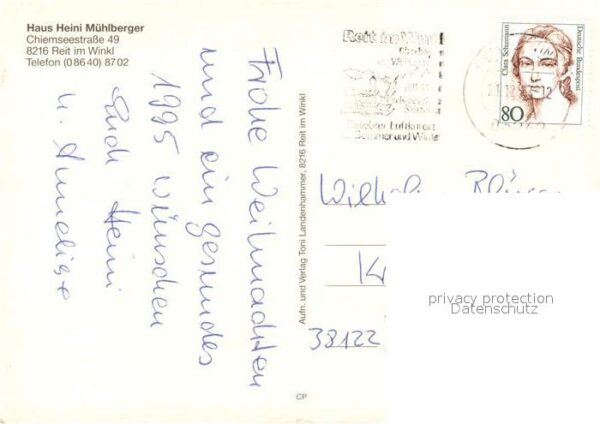 Haus Heini Mühlberger
Chiemseestraße 49
8216 Reit im Winkl
Telefon (0 86 40) 87 02
Frohe Weihnachten
und ein gesundes
1995 wünschen
Euch Heini
u. Annelise
Aufn. und Verlag Toni Landenhammer, 8216 Reit im Winkl
CP
Reit im Win
Luftkurort
Sommer und Winter
Clara Schumann
Deutsche Bundespost
80
38122
privacy protection
Datenschutz